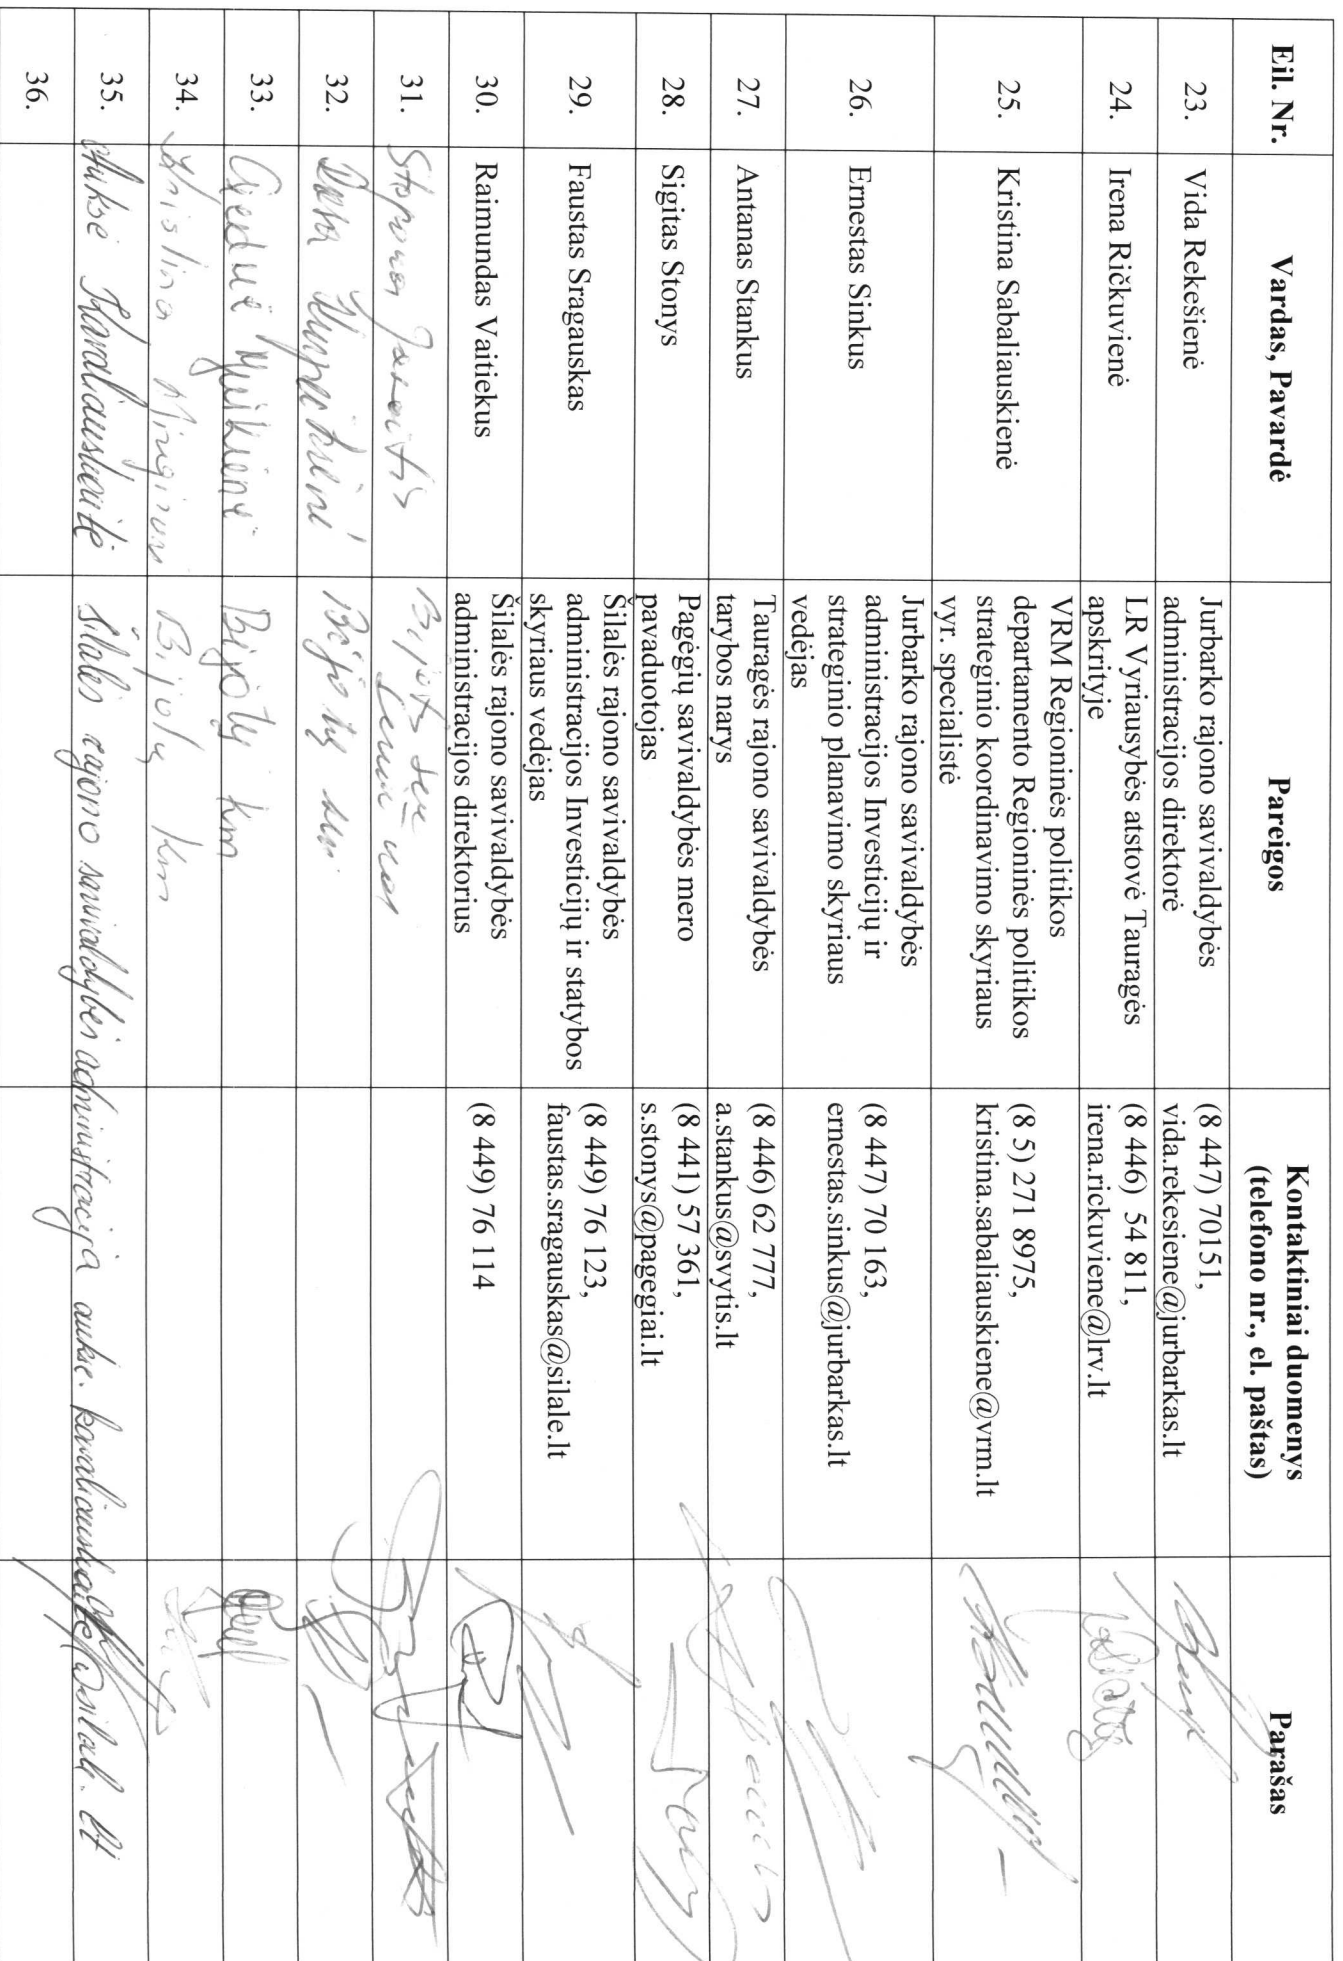 Eil. Nr. Vardas, Pavardė Pareigos Kontaktiniai duomenys (telefono nr., el. paštas) Parašas
23. Vida Rekešienė Jurbarko rajono savivaldybės administracijos direktorė (8 447) 70151, vida.rekesiene@jurbarkas.lt
24. Irena Ričkuvienė LR Vyriausybės atstovė Tauragės apskrityje (8 446) 54 811, irena.rickuviene@lrv.lt
25. Kristina Sabaliauskienė VRM Regioninės politikos departamento Regioninės politikos strateginio koordinavimo skyriaus vyr. specialistė (8 5) 271 8975, kristina.sabaliauskiene@vrm.lt
26. Ernestas Sinkus Jurbarko rajono savivaldybės administracijos Investicijų ir strateginio planavimo skyriaus vedėjas (8 447) 70 163, ernestas.sinkus@jurbarkas.lt
27. Antanas Stankus Tauragės rajono savivaldybės tarybos narys (8 446) 62 777, a.stankus@svytis.lt
28. Sigitas Stonys Pagėgių savivaldybės mero pavaduotojas (8 441) 57 361, s.stonys@pagegiai.lt
29. Faustas Sragauskas Šilalės rajono savivaldybės administracijos Investicijų ir statybos skyriaus vedėjas (8 449) 76 123, faustas.sragauskas@silale.lt
30. Raimundas Vaitiekus Šilalės rajono savivaldybės administracijos direktorius (8 449) 76 114
31.
32. Bijotų
33. Bijotų km
34. Kristina Bijotų km
35. Auksė Karaliauskaitė Šilalės rajono savivaldybės administracija aukse.karaliauskaite@silale.lt
36.